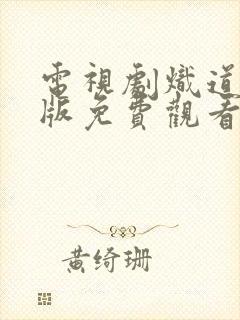 電視劇熾道
版免費觀看
黄绮珊